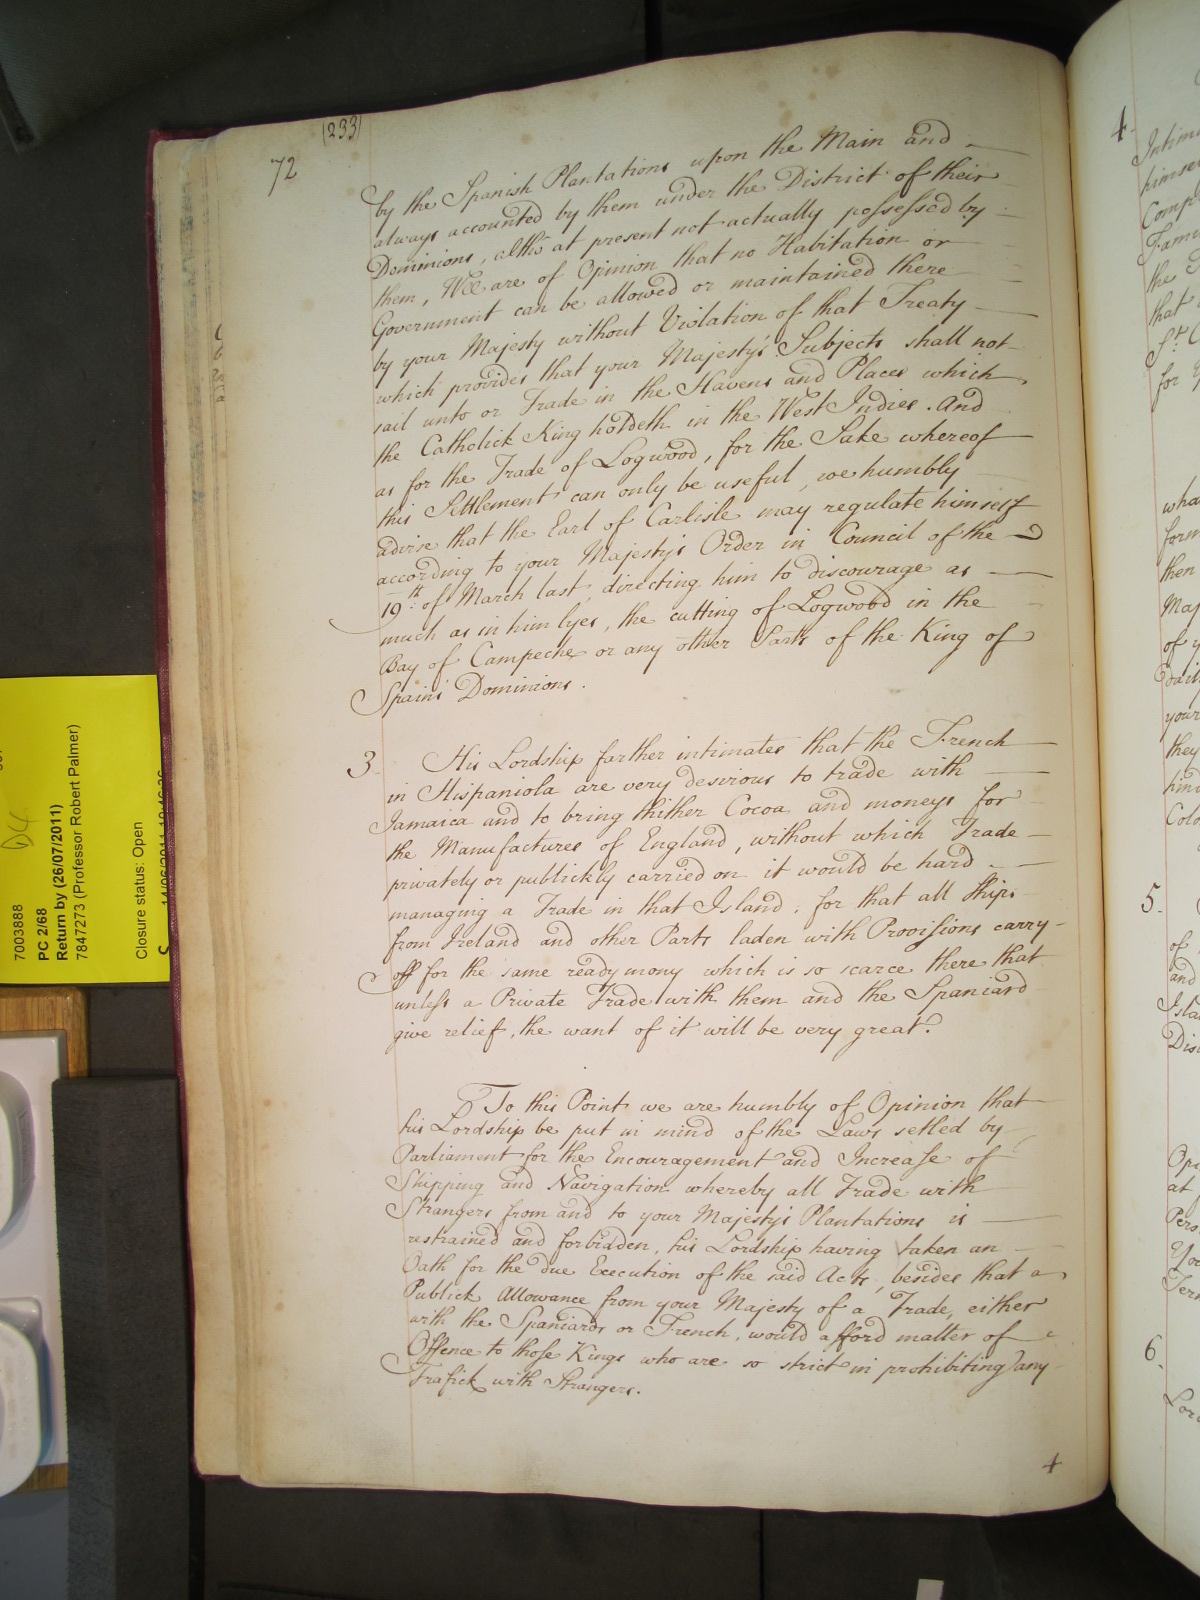 (233)
72
by the Spanish Plantations upon the Main and
always accounted by them under the District of their
Dominions, altho at present not actually possessed by
them, Wee are of Opinion that no Habitation or
Government can be allowed or maintained there
by your Majesty without Violation of that Treaty
which provides that your Majesty's Subjects shall not
sail unto or Trade in the Havens and Places which
the Catholick King holdeth in the West Indies. And
as for the Trade of Logwood, for the Sake whereof
this Settlement can only be useful, we humbly
advise that the Earl of Carlisle may regulate himself
according to your Majesty's Order in Council of the
19th of March last, directing him to discourage as
much as in him lyes, the cutting of Logwood in the
Bay of Campeche or any other Parts of the King of
Spains Dominions.
3. His Lordship farther intimates that the French
in Hispaniola are very desirous to trade with
Jamaica and to bring thither Cocoa and moneys for
the Manufactures of England, without which Trade
privately or publickly carried on it would be hard
managing a Trade in that Island, for that all Ships
from Ireland and other Parts laden with Provisions carry
off for the same ready mony which is so scarce there that
unless a Private Trade with them and the Spaniard
give relief, the want of it will be very great.
To this Point we are humbly of Opinion that
his Lordship be put in mind of the Laws setled by
Parliament for the Encouragement and Increase of
Shipping and Navigation whereby all Trade with
Strangers from and to your Majesty's Plantations is
restrained and forbidden, his Lordship having taken an
Oath for the due Execution of the said Acts, besides that a
Publick Allowance from your Majesty of a Trade, either
with the Spaniards or French, would afford matter of
Offence to those Kings who are so strict in prohibiting any
Trafick with Strangers.
4
4.
himse
Comp
the
that
for
wha
form
then
Maj
of y
your
they
Colo
5.
of
and
Isla
Dis
Opi
at
Pers
Yo
6.
Lor
7003888
PC 2/68
Return by (26/07/2011)
7847273 (Professor Robert Palmer)
Closure status: Open